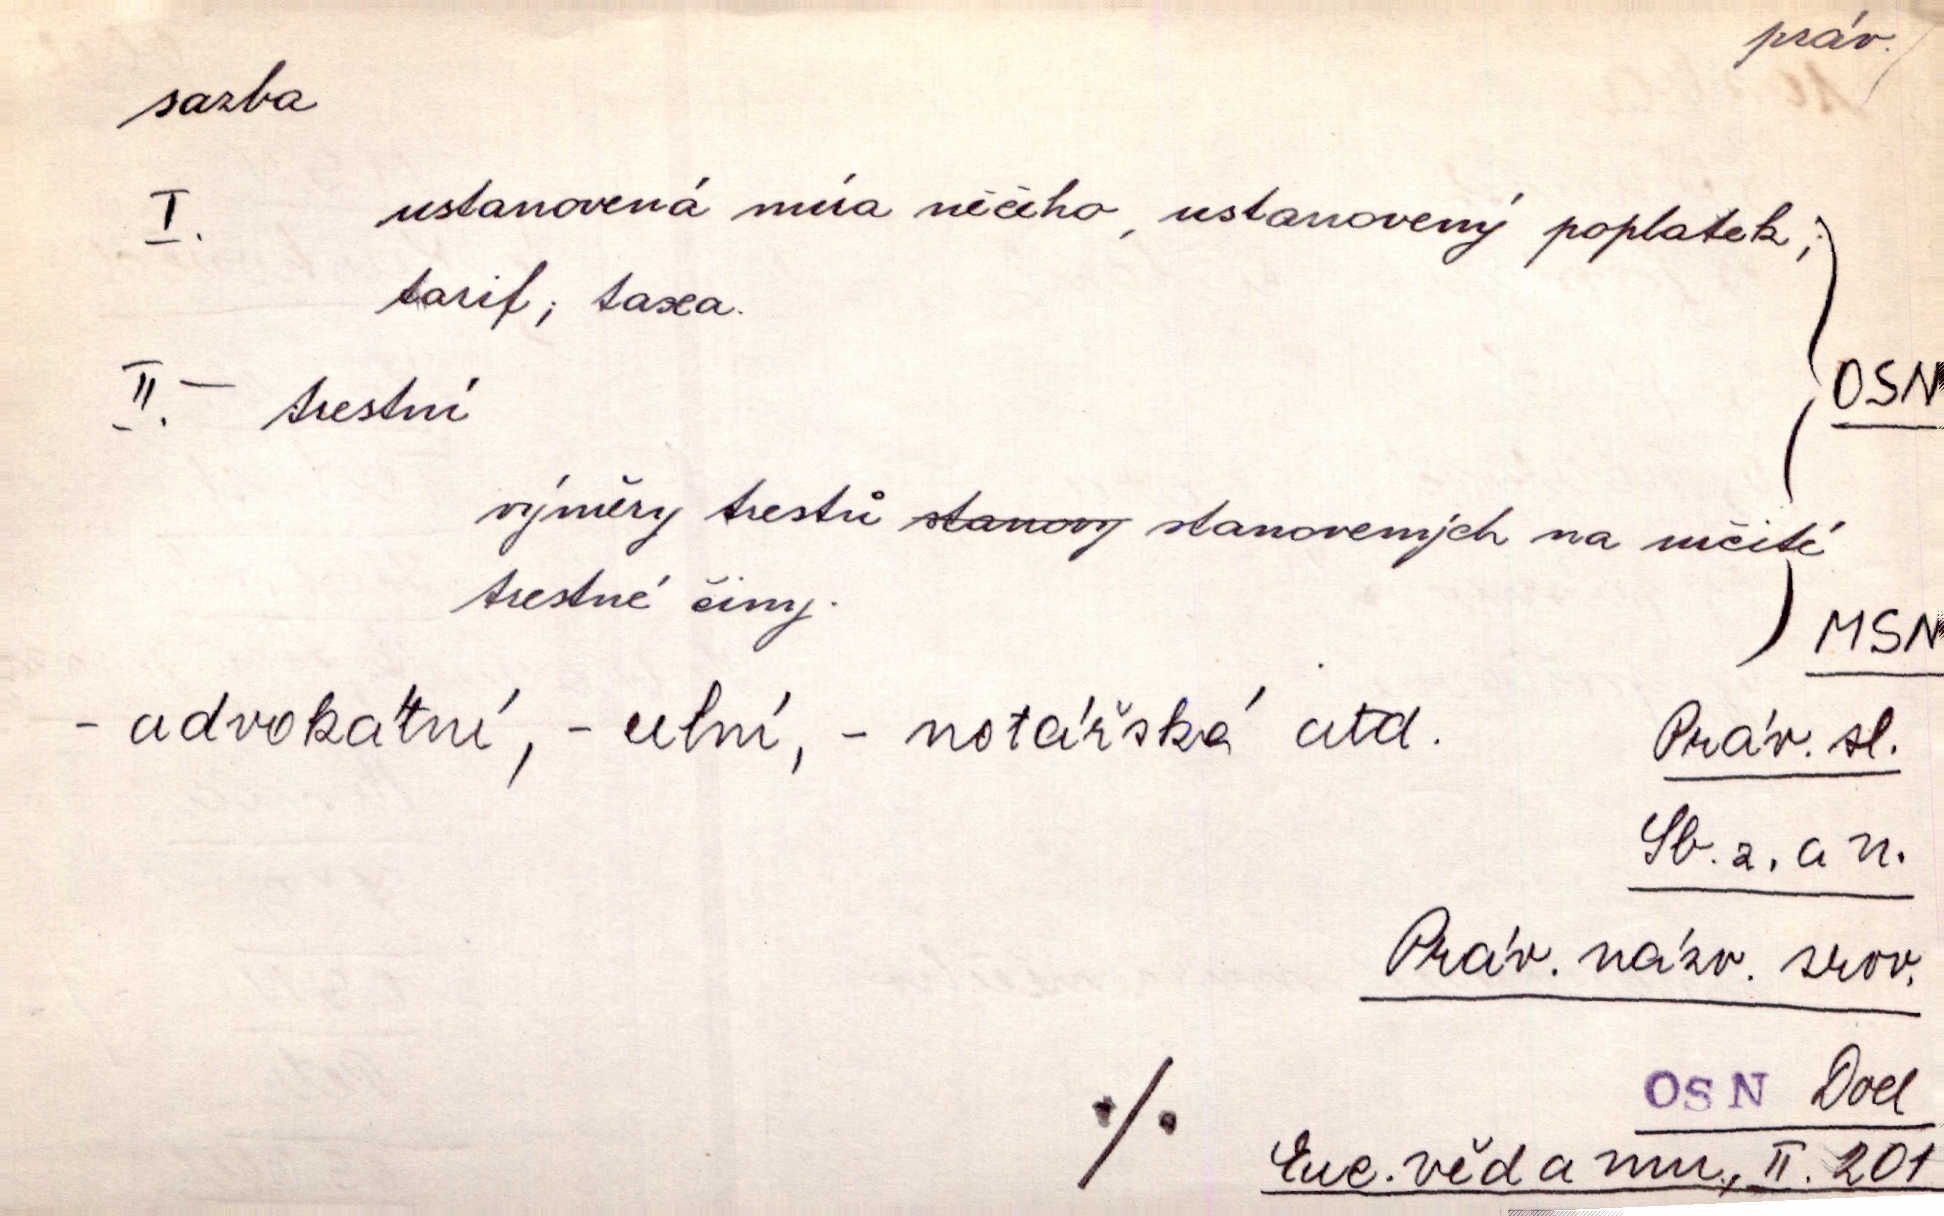 práv.
sazba
I. ustanovená míra něčeho, ustanovený poplatek;
tarif; taxa.
OSN
II. — trestní
výměry trestů stanovy stanovených na určité
trestné činy.
MSN
- advokátní, - celní, - notářská atd. Práv. sl.
Sb. z. a n.
Práv. názv. srov.
OSN Dod
./.
Enc. věd a um., II. 201